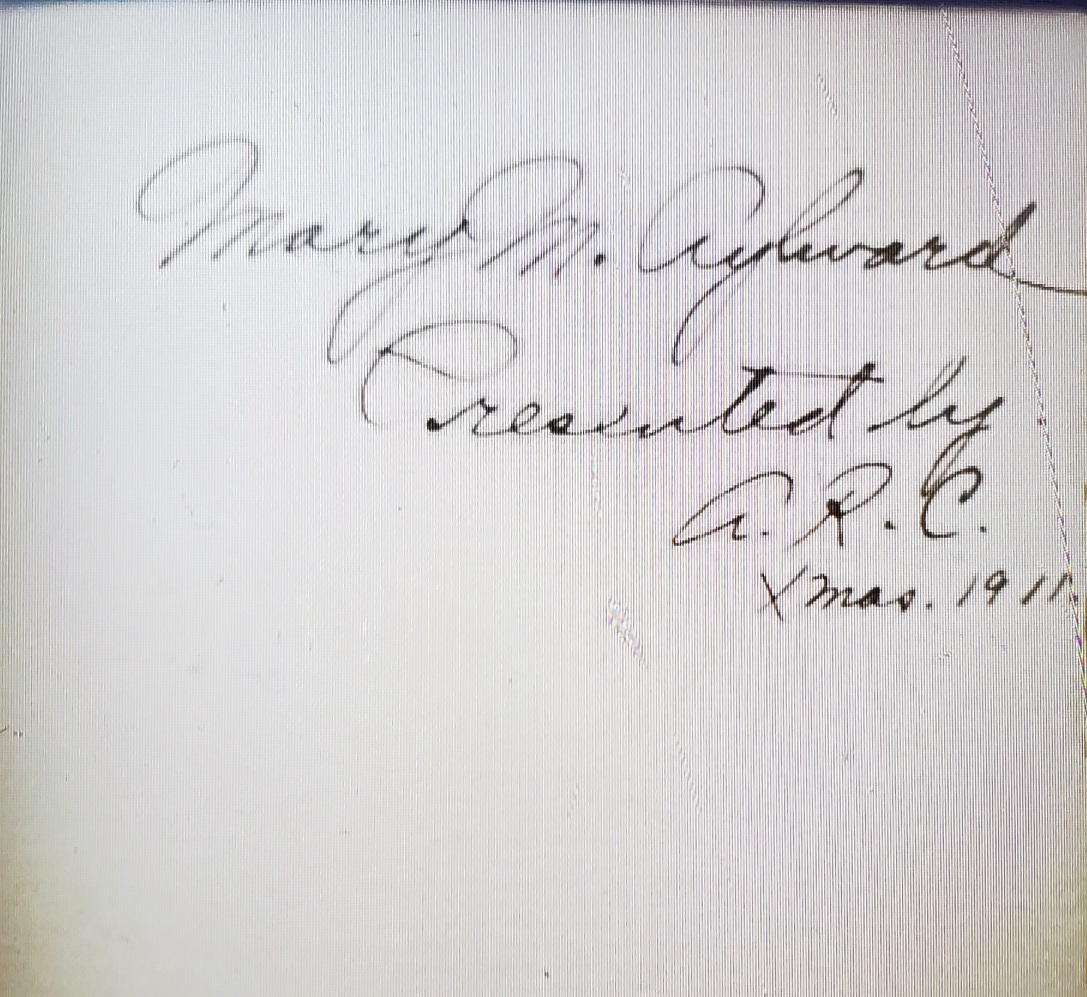 Mary M. Aylward
Presented by
A. R. C.
Xmas. 1911